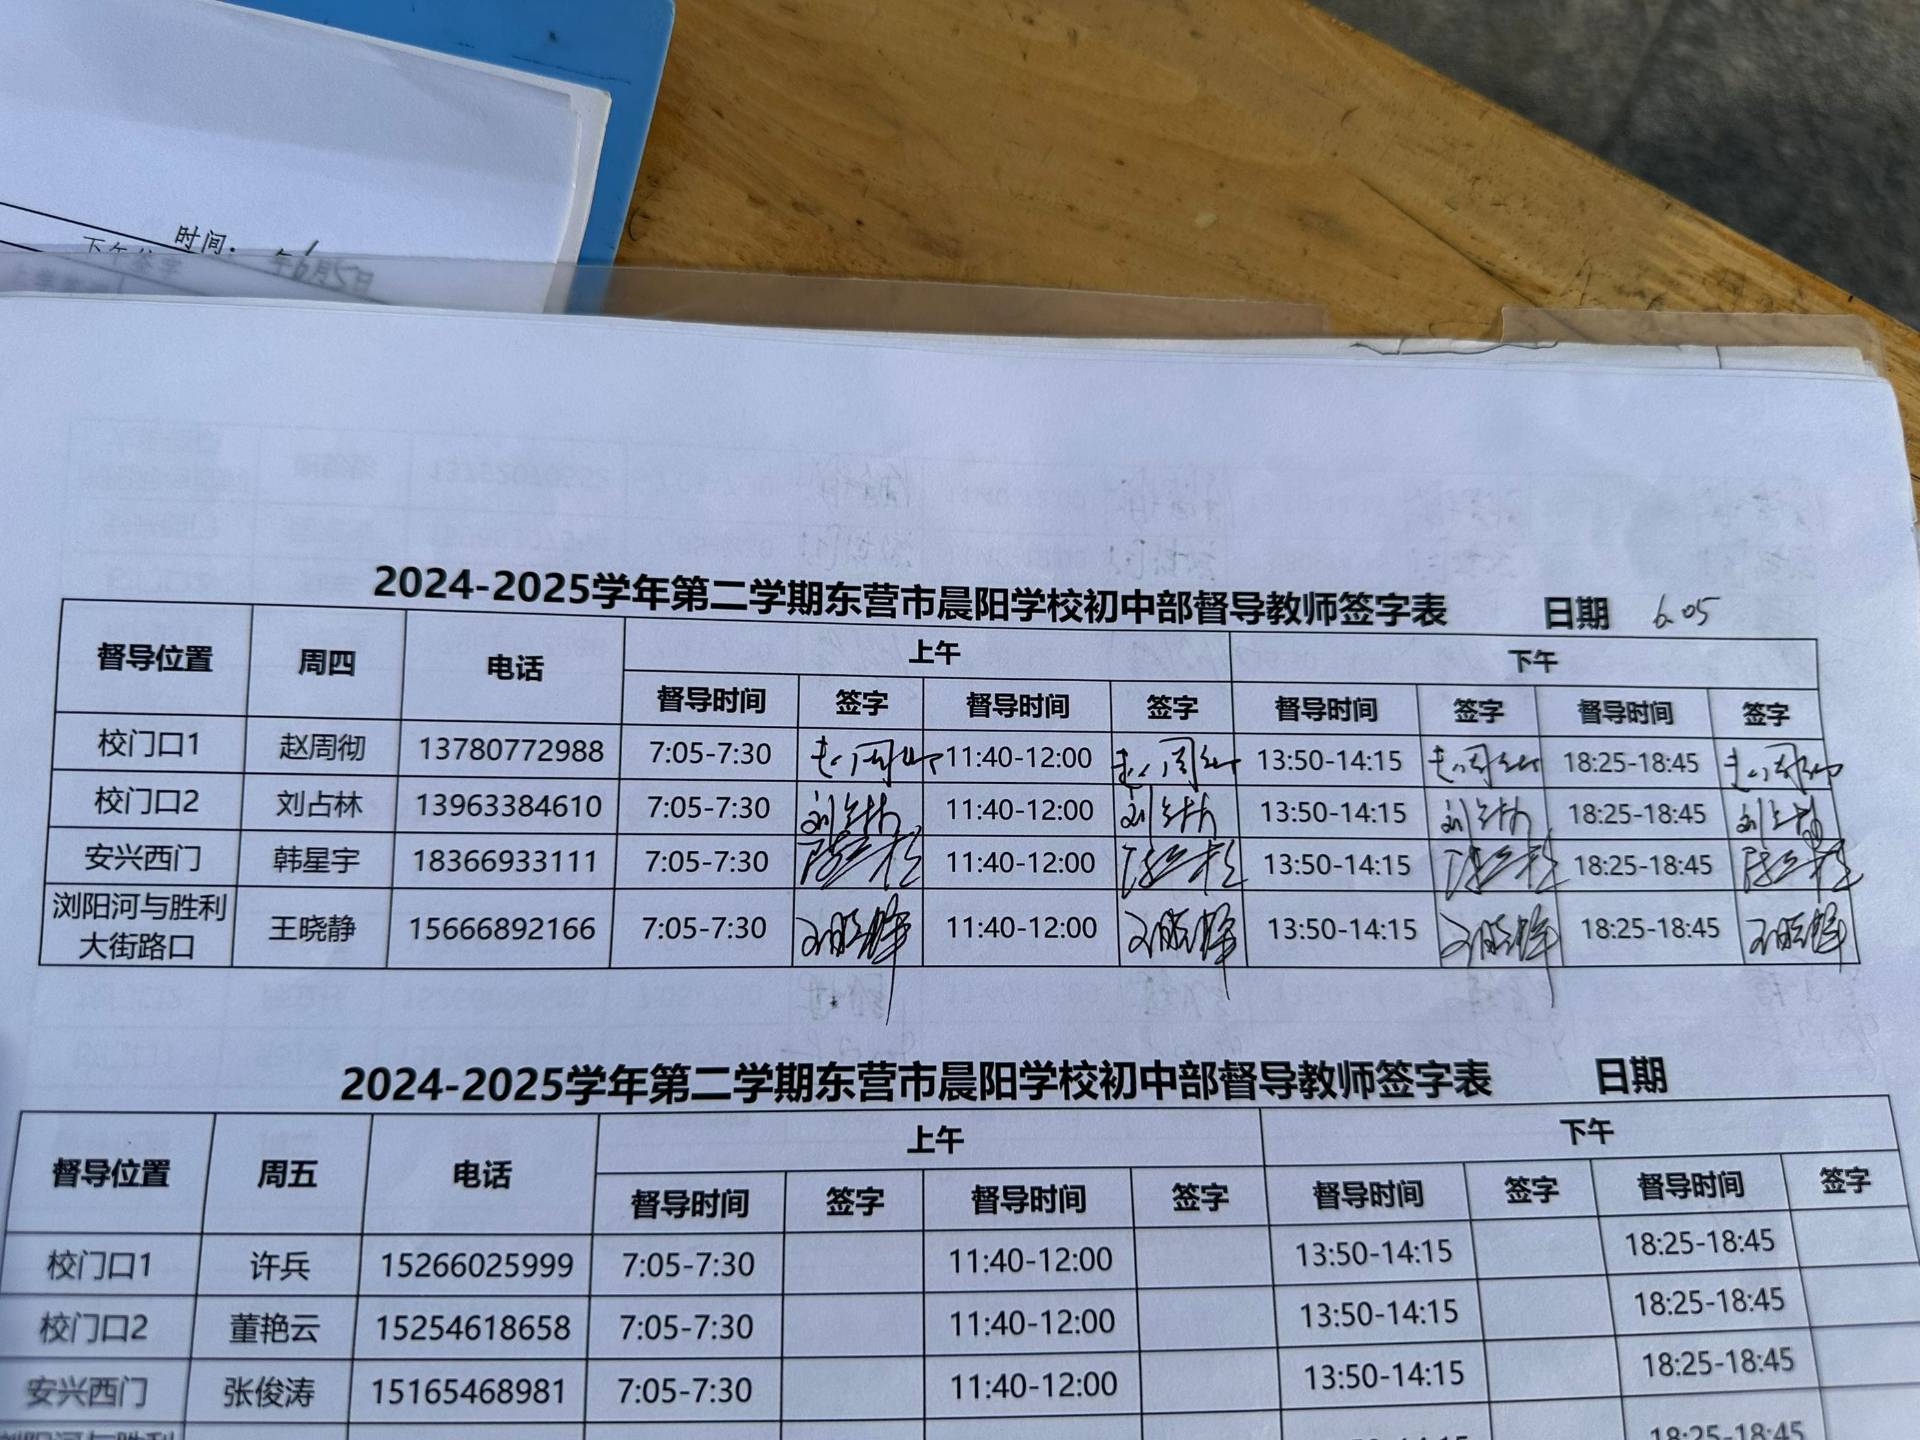 时间： 年6月5日
下午 签字
2024-2025学年第二学期东营市晨阳学校初中部督导教师签字表 日期 6.05
督导位置 周四 电话 上午 下午
督导时间 签字 督导时间 签字 督导时间 签字 督导时间 签字
校门口1 赵周彻 13780772988 7:05-7:30 赵周彻 11:40-12:00 赵周彻 13:50-14:15 赵周彻 18:25-18:45 赵周彻
校门口2 刘占林 13963384610 7:05-7:30 刘占林 11:40-12:00 刘占林 13:50-14:15 刘占林 18:25-18:45 刘占林
安兴西门 韩星宇 18366933111 7:05-7:30 11:40-12:00 13:50-14:15 18:25-18:45
浏阳河与胜利
大街路口 王晓静 15666892166 7:05-7:30 11:40-12:00 13:50-14:15 18:25-18:45
2024-2025学年第二学期东营市晨阳学校初中部督导教师签字表 日期
督导位置 周五 电话 上午 下午
督导时间 签字 督导时间 签字 督导时间 签字 督导时间 签字
校门口1 许兵 15266025999 7:05-7:30 11:40-12:00 13:50-14:15 18:25-18:45
校门口2 董艳云 15254618658 7:05-7:30 11:40-12:00 13:50-14:15 18:25-18:45
安兴西门 张俊涛 15165468981 7:05-7:30 11:40-12:00 13:50-14:15 18:25-18:45
浏阳河与胜利 18:25-18:45